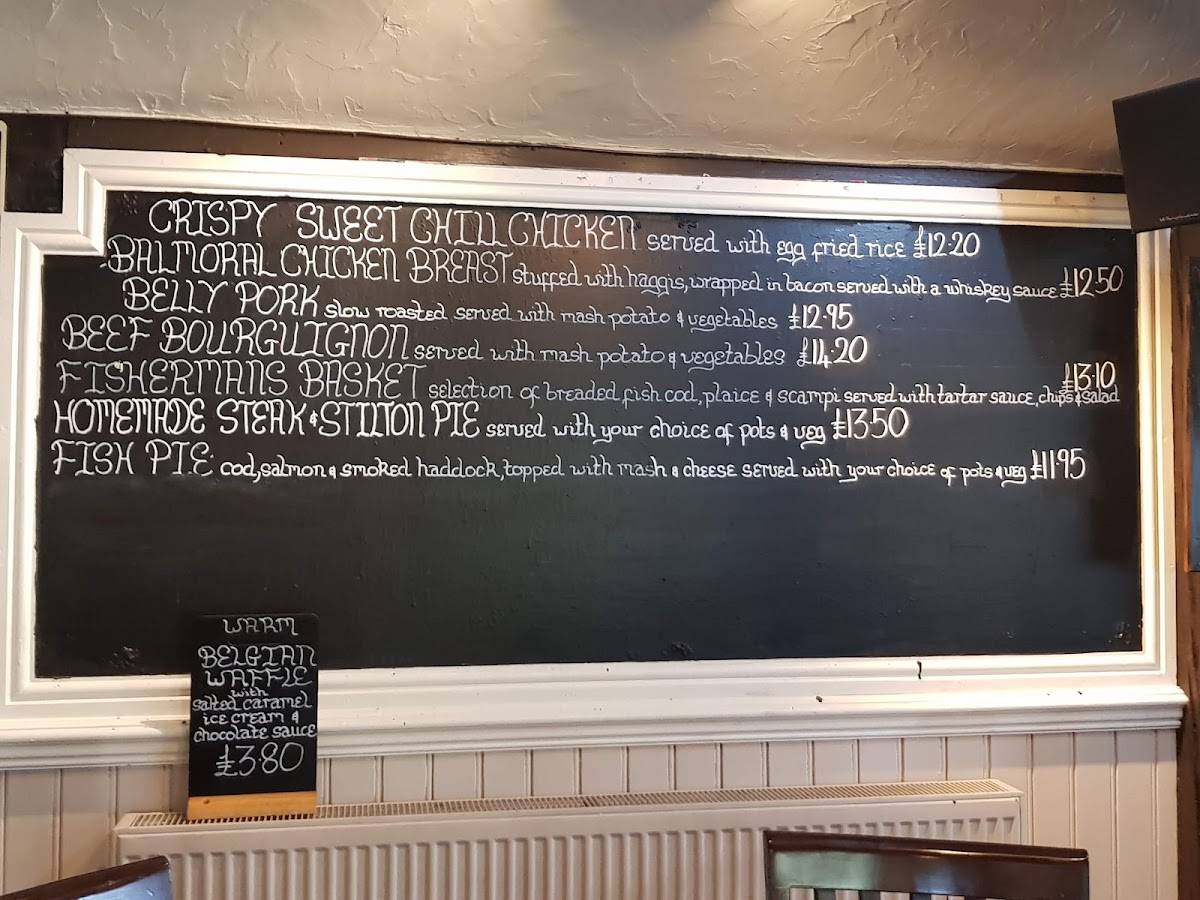 CRISPY SWEET CHILLI CHICKEN served with egg fried rice £12.20
BALMORAL CHICKEN BREAST stuffed with haggis, wrapped in bacon served with a whiskey sauce £12.50
BELLY PORK slow roasted served with mash potato & vegetables £12.95
BEEF BOURGUIGNON served with mash potato & vegetables £14.20
FISHERMANS BASKET selection of breaded fish cod, plaice & scampi served with tartar sauce, chips & salad £13.10
HOMEMADE STEAK & STILTON PIE served with your choice of pots & veg £13.50
FISH PIE cod, salmon & smoked haddock, topped with mash & cheese served with your choice of pots & veg £11.95
WARM
BELGIAN
WAFFLE
with
salted caramel
ice cream &
chocolate sauce
£3.80